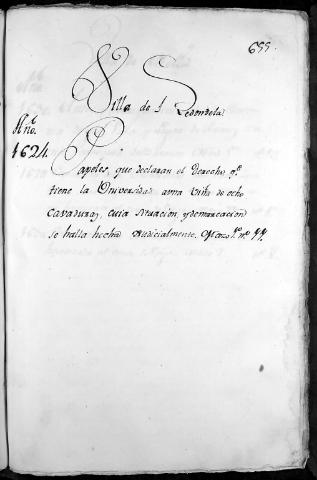 655.
Villa de Redondela
Año.
1624.
Papeles, que declaran el derecho q.e
tiene la Universidad auna Viña de ocho
Cavaduras, cuia situacion, y demarcacion
se halla hecha Judicialmente. Mazo 1.º nº 77.